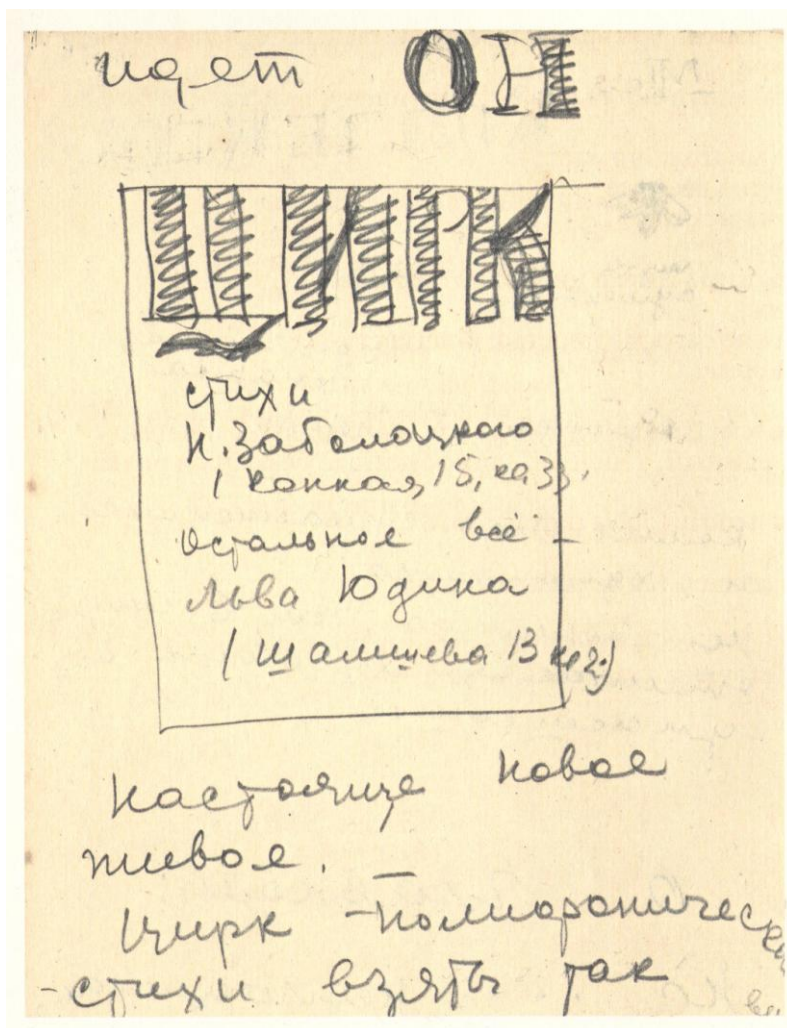 идет ОН
ЦИРК
стихи
Н. Заболоцкого
(Конная, 15, кв. 33.
Остальное всё –
Льва Юдина
(Шамшева 13 кв 2)
настояще новое
живое.
Цирк – полифонически
– стихи взяты так